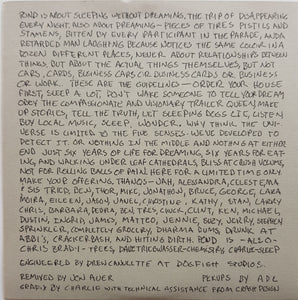 POND IS ABOUT SLEEPING WITHOUT DREAMING, THE TRIP OF DISAPPEARING
EVERY NIGHT. ALSO ABOUT DREAMING - PIECES OF TIRES PISTILS AND
STAMENS, BITTEN BY EVERY PARTICIPANT IN THE PARADE, AND A
RETARDED MAN LAUGHING BECAUSE NOTICES THE SAME COLOR IN A
DOZEN DIFFERENT PLACES, NEVER ABOUT RELATIONSHIPS BETWEEN
THINGS, BUT ABOUT THE ACTUAL THINGS THEMSELVES, BUT NOT
CARS, CARDS, BUSINESS CARS OR BUSINESS CARDS OR BUSINESS
OR WORK. THESE ARE THE GUIDELINES - ORDER YOUR HOUSE
FIRST, SLEEP A LOT, DON'T WAKE SOMEONE TO TELL YOUR DREAM
OBEY THE COMPASSIONATE AND VISIONARY TRAILER QUEEN, MAKE
UP STORIES, TELL THE TRUTH, LET SLEEPING DOGS LIE, LISTEN
BUY LOCAL MUSIC, SLEEP, WONDER, WHY THINK THE UNI-
VERSE IS LIMITED TO THE FIVE SENSES WE'VE DEVELOPED TO
DETECT IT OR NOTHING IN THE MIDDLE AND NOTHING AT EITHER
END JUST SIX YEARS OF LIFE FOR DREAMING, SIX YEARS FOR EAT-
ING, AND WALKING UNDER LEAF CATHEDRALS, BLISS AT CRUSH VOLUME,
NOT FOR REELING BALLS OF PAIN. HERE FOR A LIMITED TIME ONLY
MAKE YOUR OFFERING THANKS - JAH, ALESSANDRA, CELESTE, MA
+ SIS, TRICD, DEL, THOR, MIKE, JONATHON, BRUCE, GEORGE, LARA
MOIRA, EILEEN, JASON, JANEL, CHRISTINE, KATHY, STAN, LARRY
CHRIS, BARBARA, DEBRA, BEN, TREY, CHUCK, CLINT, KEN, MICHAEL,
DUSTIN, INGRID, JAMES, MATTEO, JENNIE, SUZY, JERRY, STEVEN
SPRINKLER, COMPLETELY GROCERY, DHARMA BUMS, DRUNK AT
ABBI'S, CRACKERBASH AND HITTING BIRTH. POND IS -
CHRIS BRADY - TREES, DAVE TRICBWASSER - CHEMISTRY, CHARLIE - SLEEP
ENGINEERED BY DREW CANULETTE AT DOGFISH STUDIOS.
REMIXED BY JON AUER
BY CHARLIE WITH TECHNICAL ASSISTANCE FROM CRASH DESIGN